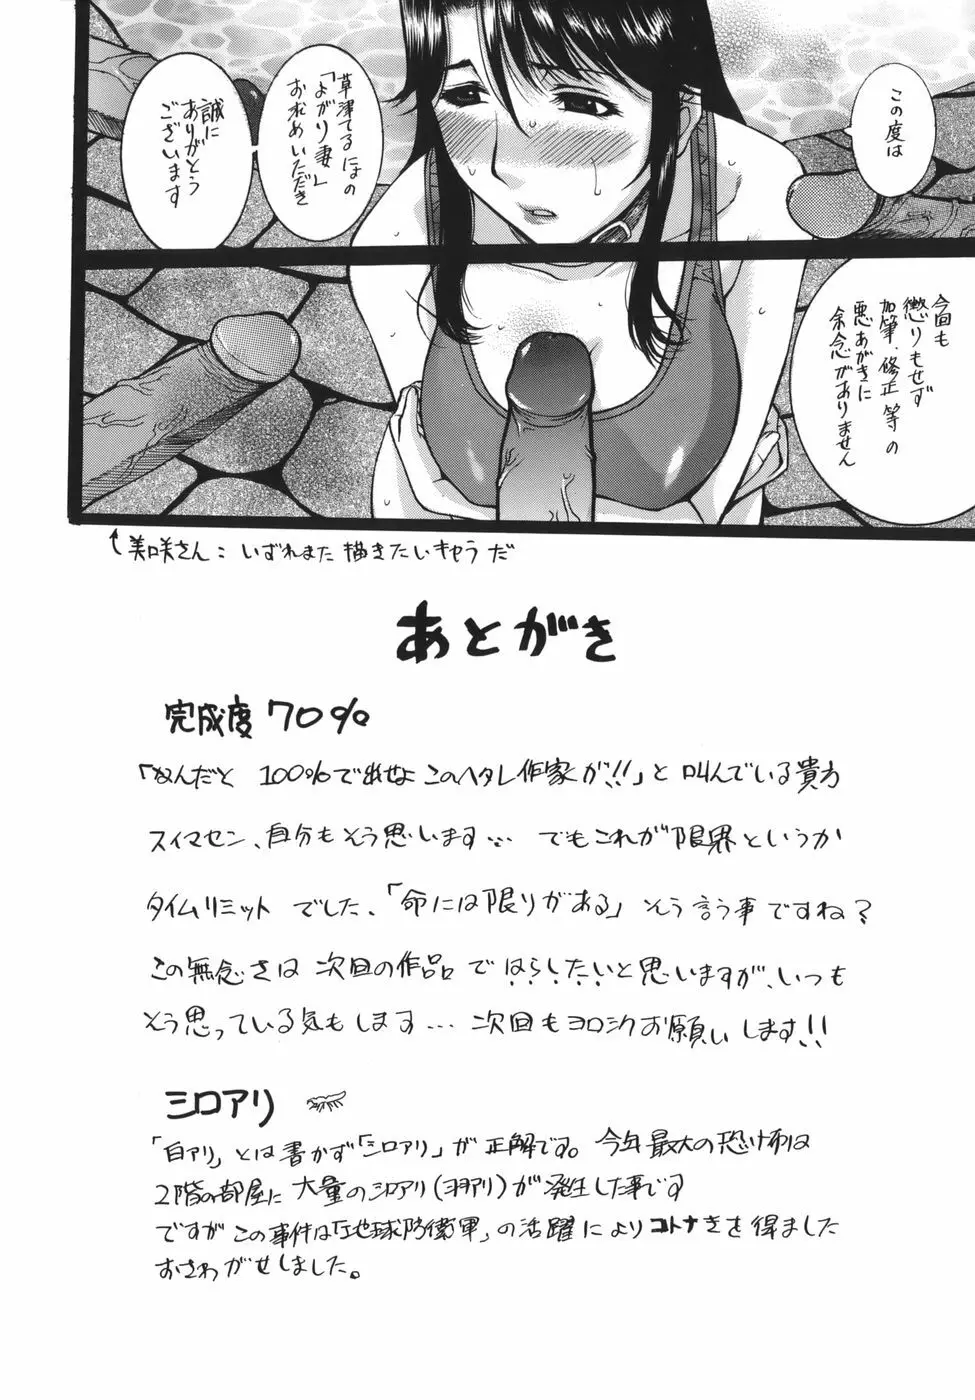 この度は
草津てるにょの
「よがり妻」
お求めいただき
誠に
ありがとう
ございます
今回も
懲りもせず
加筆、修正等の
悪あがきに
余念がありません
美咲さん:いずれまた描きたいキャラだ
あとがき
完成度70%
「なんだと 100%で出せよこのヘタレ作家が!!」と叫んでいる貴方
スイマセン、自分もそう思います… でもこれが限界というか
タイムリミットでした、「命には限りがある」そう言う事ですね?
この無念さは次回の作品ではらしたいと思いますが、いつも
そう思っている気もします…次回もヨロシクお願いします!!
シロアリ
「白アリ」とは書かず「シロアリ」が正解です。今年最大の恐怖は
2階の部屋に大量のシロアリ(ヨヨアリ)が発生した事です
ですがこの事件は「地球防衛軍」の活躍によりコトナキを得ました
おさわがせしました。